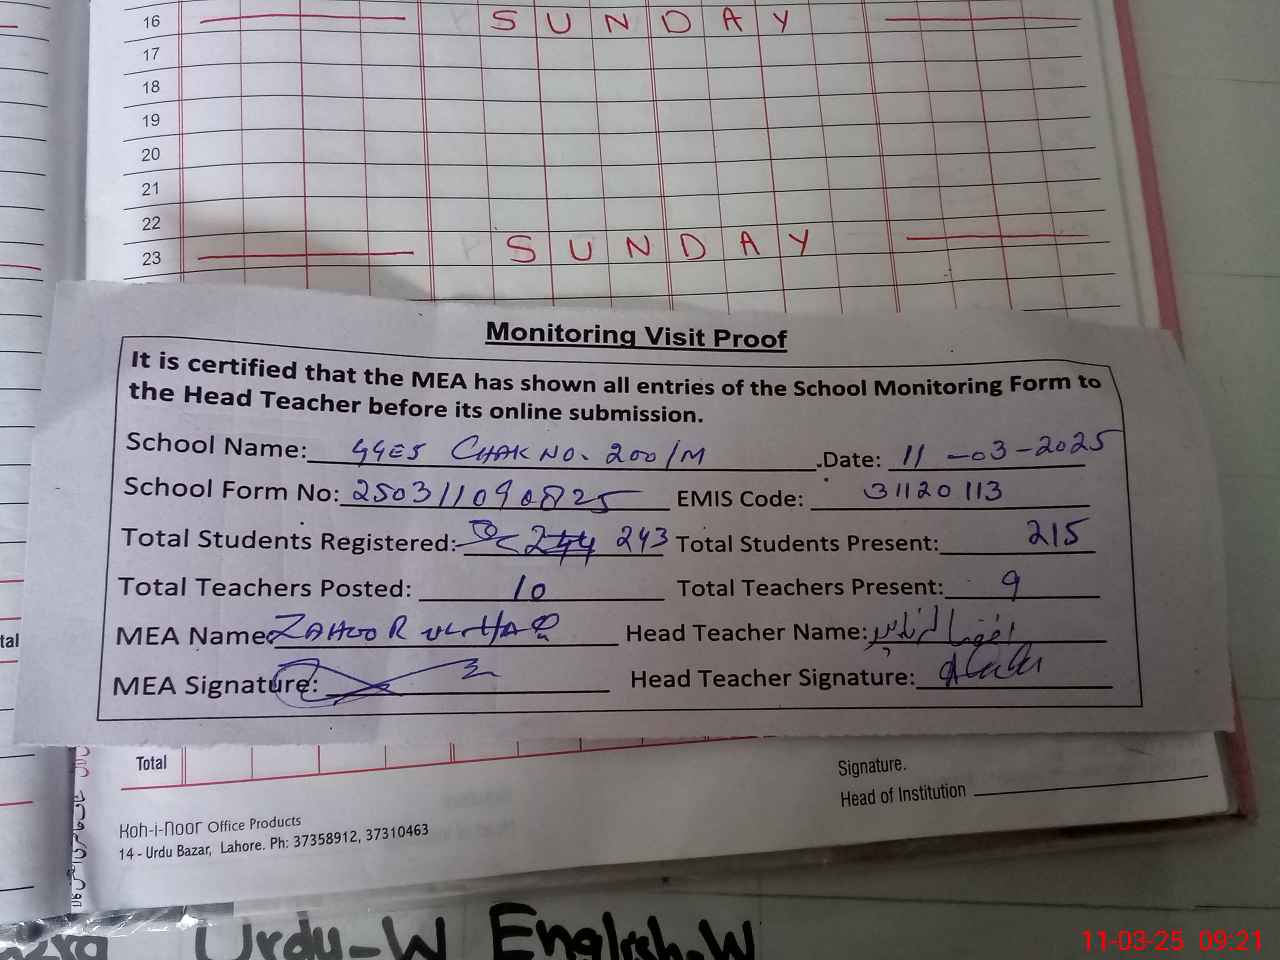 16 SUNDAY
17
18
19
20
21
22
23 SUNDAY
Monitoring Visit Proof
It is certified that the MEA has shown all entries of the School Monitoring Form to
the Head Teacher before its online submission.
School Name: GGES CHAK NO. 200/M .Date: 11-03-2025
School Form No: 250311090825 EMIS Code: 31120113
Total Students Registered: 243 Total Students Present: 215
Total Teachers Posted: 10 Total Teachers Present: 9
MEA Name: ZAHOOR UL HAQ Head Teacher Name:
MEA Signature: Head Teacher Signature:
tal
Total
Signature.
Head of Institution
Koh-i-noor Office Products
14 - Urdu Bazar, Lahore. Ph: 37358912, 37310463
Urdu-W English-W
11-03-25 09:21